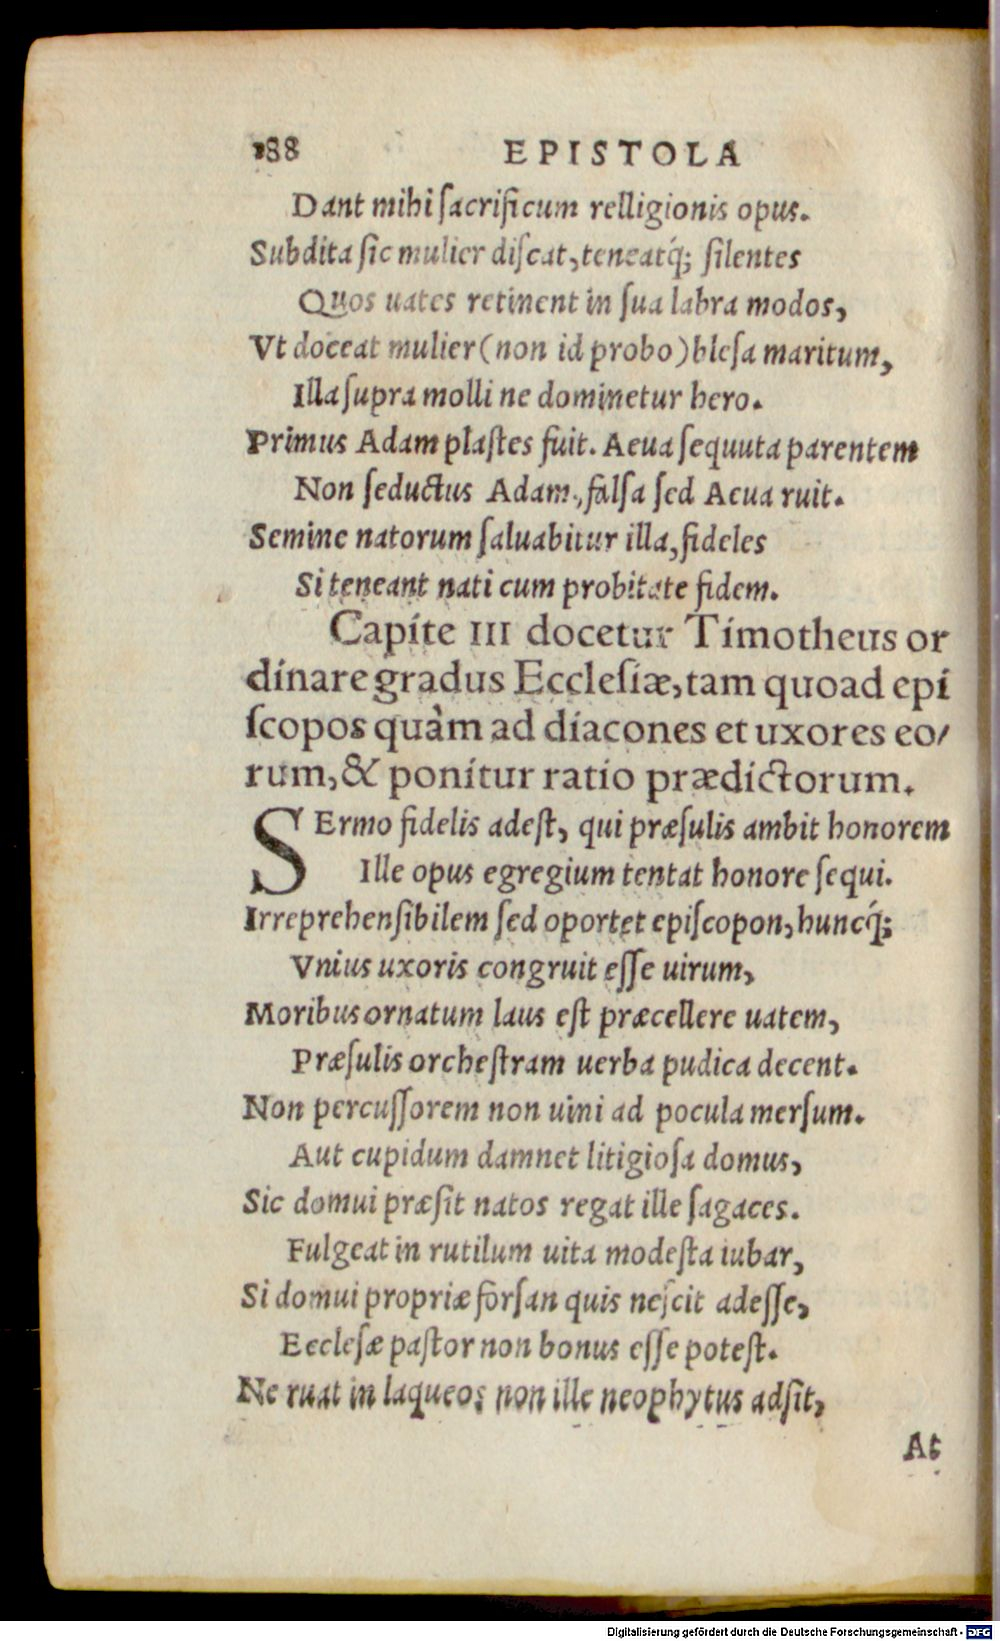 188 EPISTOLA
Dant mihi ſacrificum relligionis opus.
Subdita ſic mulier diſcat, teneatq́; ſilentes
Quos uates retinent in ſua labra modos,
Vt doceat mulier (non id probo) bleſa maritum,
Illa ſupra molli ne dominetur hero.
Primus Adam plaſtes fuit. Aeua ſequuta parentem
Non ſeductus Adam., falſa ſed Aeua ruit.
Semine natorum ſaluabitur illa, fideles
Si teneant nati cum probitate fidem.
Capite III docetur Timotheus or
dinare gradus Eccleſiæ, tam quoad epi
ſcopos quàm ad diacones et uxores eo/
rum, & ponitur ratio prædictorum.
SErmo fidelis adeſt, qui præſulis ambit honorem
Ille opus egregium tentat honore ſequi.
Irreprehenſibilem ſed oportet epiſcopon, huncq́;
Vnius uxoris congruit eſſe uirum,
Moribus ornatum laus eſt præcellere uatem,
Præſulis orcheſtram uerba pudica decent.
Non percuſſorem non uini ad pocula merſum.
Aut cupidum damnet litigioſa domus,
Sic domui præſit natos regat ille ſagaces.
Fulgeat in rutilum uita modeſta iubar,
Si domui propriæ forſan quis neſcit adeſſe,
Eccleſæ paſtor non bonus eſſe poteſt.
Ne ruat in laqueos non ille neophytus adſit,
At
Digitalisierung gefördert durch die Deutsche Forschungsgemeinschaft - DFG